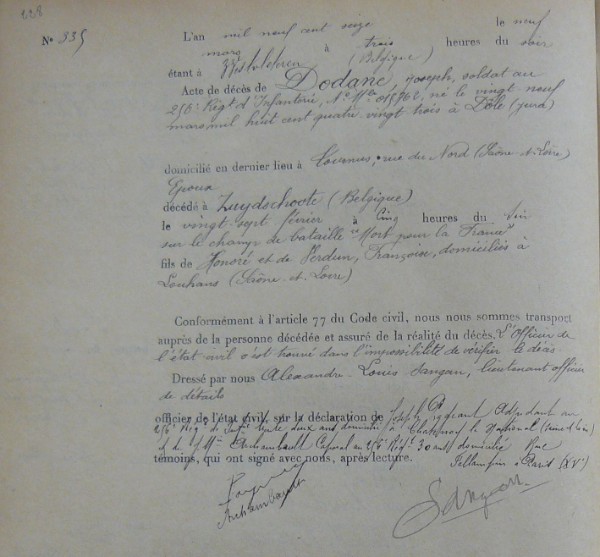 228
N° 335
L'an mil neuf cent seize le neuf
mars à trois heures du soir
étant à (Belgique)
Acte de décès de Dodane, Joseph, soldat au
256e Régt d'Infanterie, N° Mle né le vingt neuf
mars mil huit cent quatre vingt trois à Dôle (Jura)
domicilié en dernier lieu à rue du Nord (Saône-et-Loire)
Epoux
décédé à Zuydschoote (Belgique)
le vingt-sept février à cinq heures du soir
sur le champ de bataille "Mort pour la France"
fils de Honoré et de Françoise, domiciliés à
Louhans (Saône-et-Loire)
Conformément à l'article 77 du Code civil, nous nous sommes transport
auprès de la personne décédée et assuré de la réalité du décès. L'Officier de
l'état civil s'est trouvé dans l'impossibilité de vérifier le décès
Dressé par nous Alexandre-Louis Sangan, lieutenant officier
de détails
officier de l'état civil, sur la déclaration de Joseph Adjudant au
trente deux ans domicilié à Chatenay
Archambault Caporal au 30 ans domicilié Rue
témoins, qui ont signé avec nous, après lecture. à Paris (XVe)
Archambault
Sangan